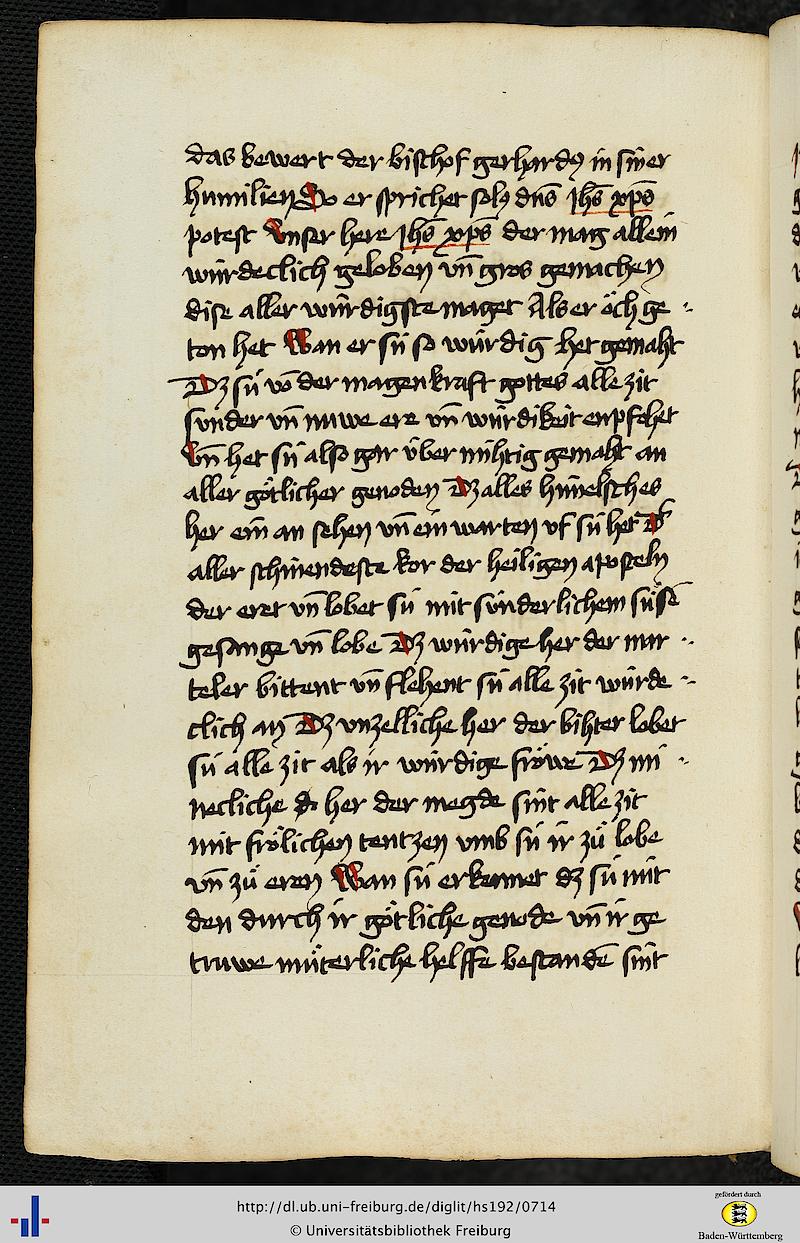 das bewert der bischof gerhardꝰ in siner
humilien Do er sprichet solꝰ dn̄s Jhs̄ xp̄s
potest Vnser here Jhs̄ xp̄s der mag allein
wúrdeclich geloben vn̄ gros gemachen
dise aller wúrdigste maget Als er öch ge
ton het Wan er sú so wúrdig het gemaht
Dz sú vō der magenkraft gottes alle zit
sunder vn̄ nuwe ere vn̄ wúrdikeit enpfohet
Vn̄ het sú also gar úber mihtig gemaht an
aller götlicher genoden Dz alles himelsches
her ein an sehen vn̄ ein warten vf sú het D
aller schinendeste kor der heiligen aposteln
der eret vn̄ lobet sú mit sunderlichem súsē
gesange vn̄ lobe Dz wúrdige her der mar
teler bittent vn̄ flehent sú alle zit wúrde
clich an Dz vnzelliche her der bihter lobet
sú alle zit als ir wúrdige fröwe Dz mi
necliche her der megde sint alle zit
mit frölichen tentzen vmb sú ir zů lobe
vn̄ zů eren Wan sú erkennet dz sú mit
den durch ir götliche genode vn̄ ir ge
truwe müterliche helffe bestandē sint
http://dl.ub.uni-freiburg.de/diglit/hs192/0714
© Universitätsbibliothek Freiburg
gefördert durch
Baden-Württemberg